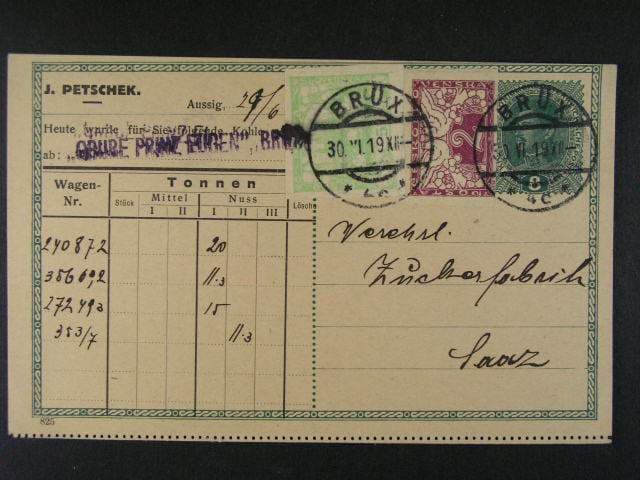 J. PETSCHEK.
Aussig, 29/6
Heute wurde für Sie folgende Kohle
ab: „GRUBE PRINZ EUGEN"
Wagen-Nr.
Tonnen
Stück Mittel Nuss Lösche
I II I II III
240872 20
35669,2 11.3
272493 15
353/7 11.3
825
BRÜX
30. VI. 19 XII
* 4c *
BRÜX
30. VI. 19 XII
* 4c *
2
8
Verehrl.
Zuckerfabrik
Saaz